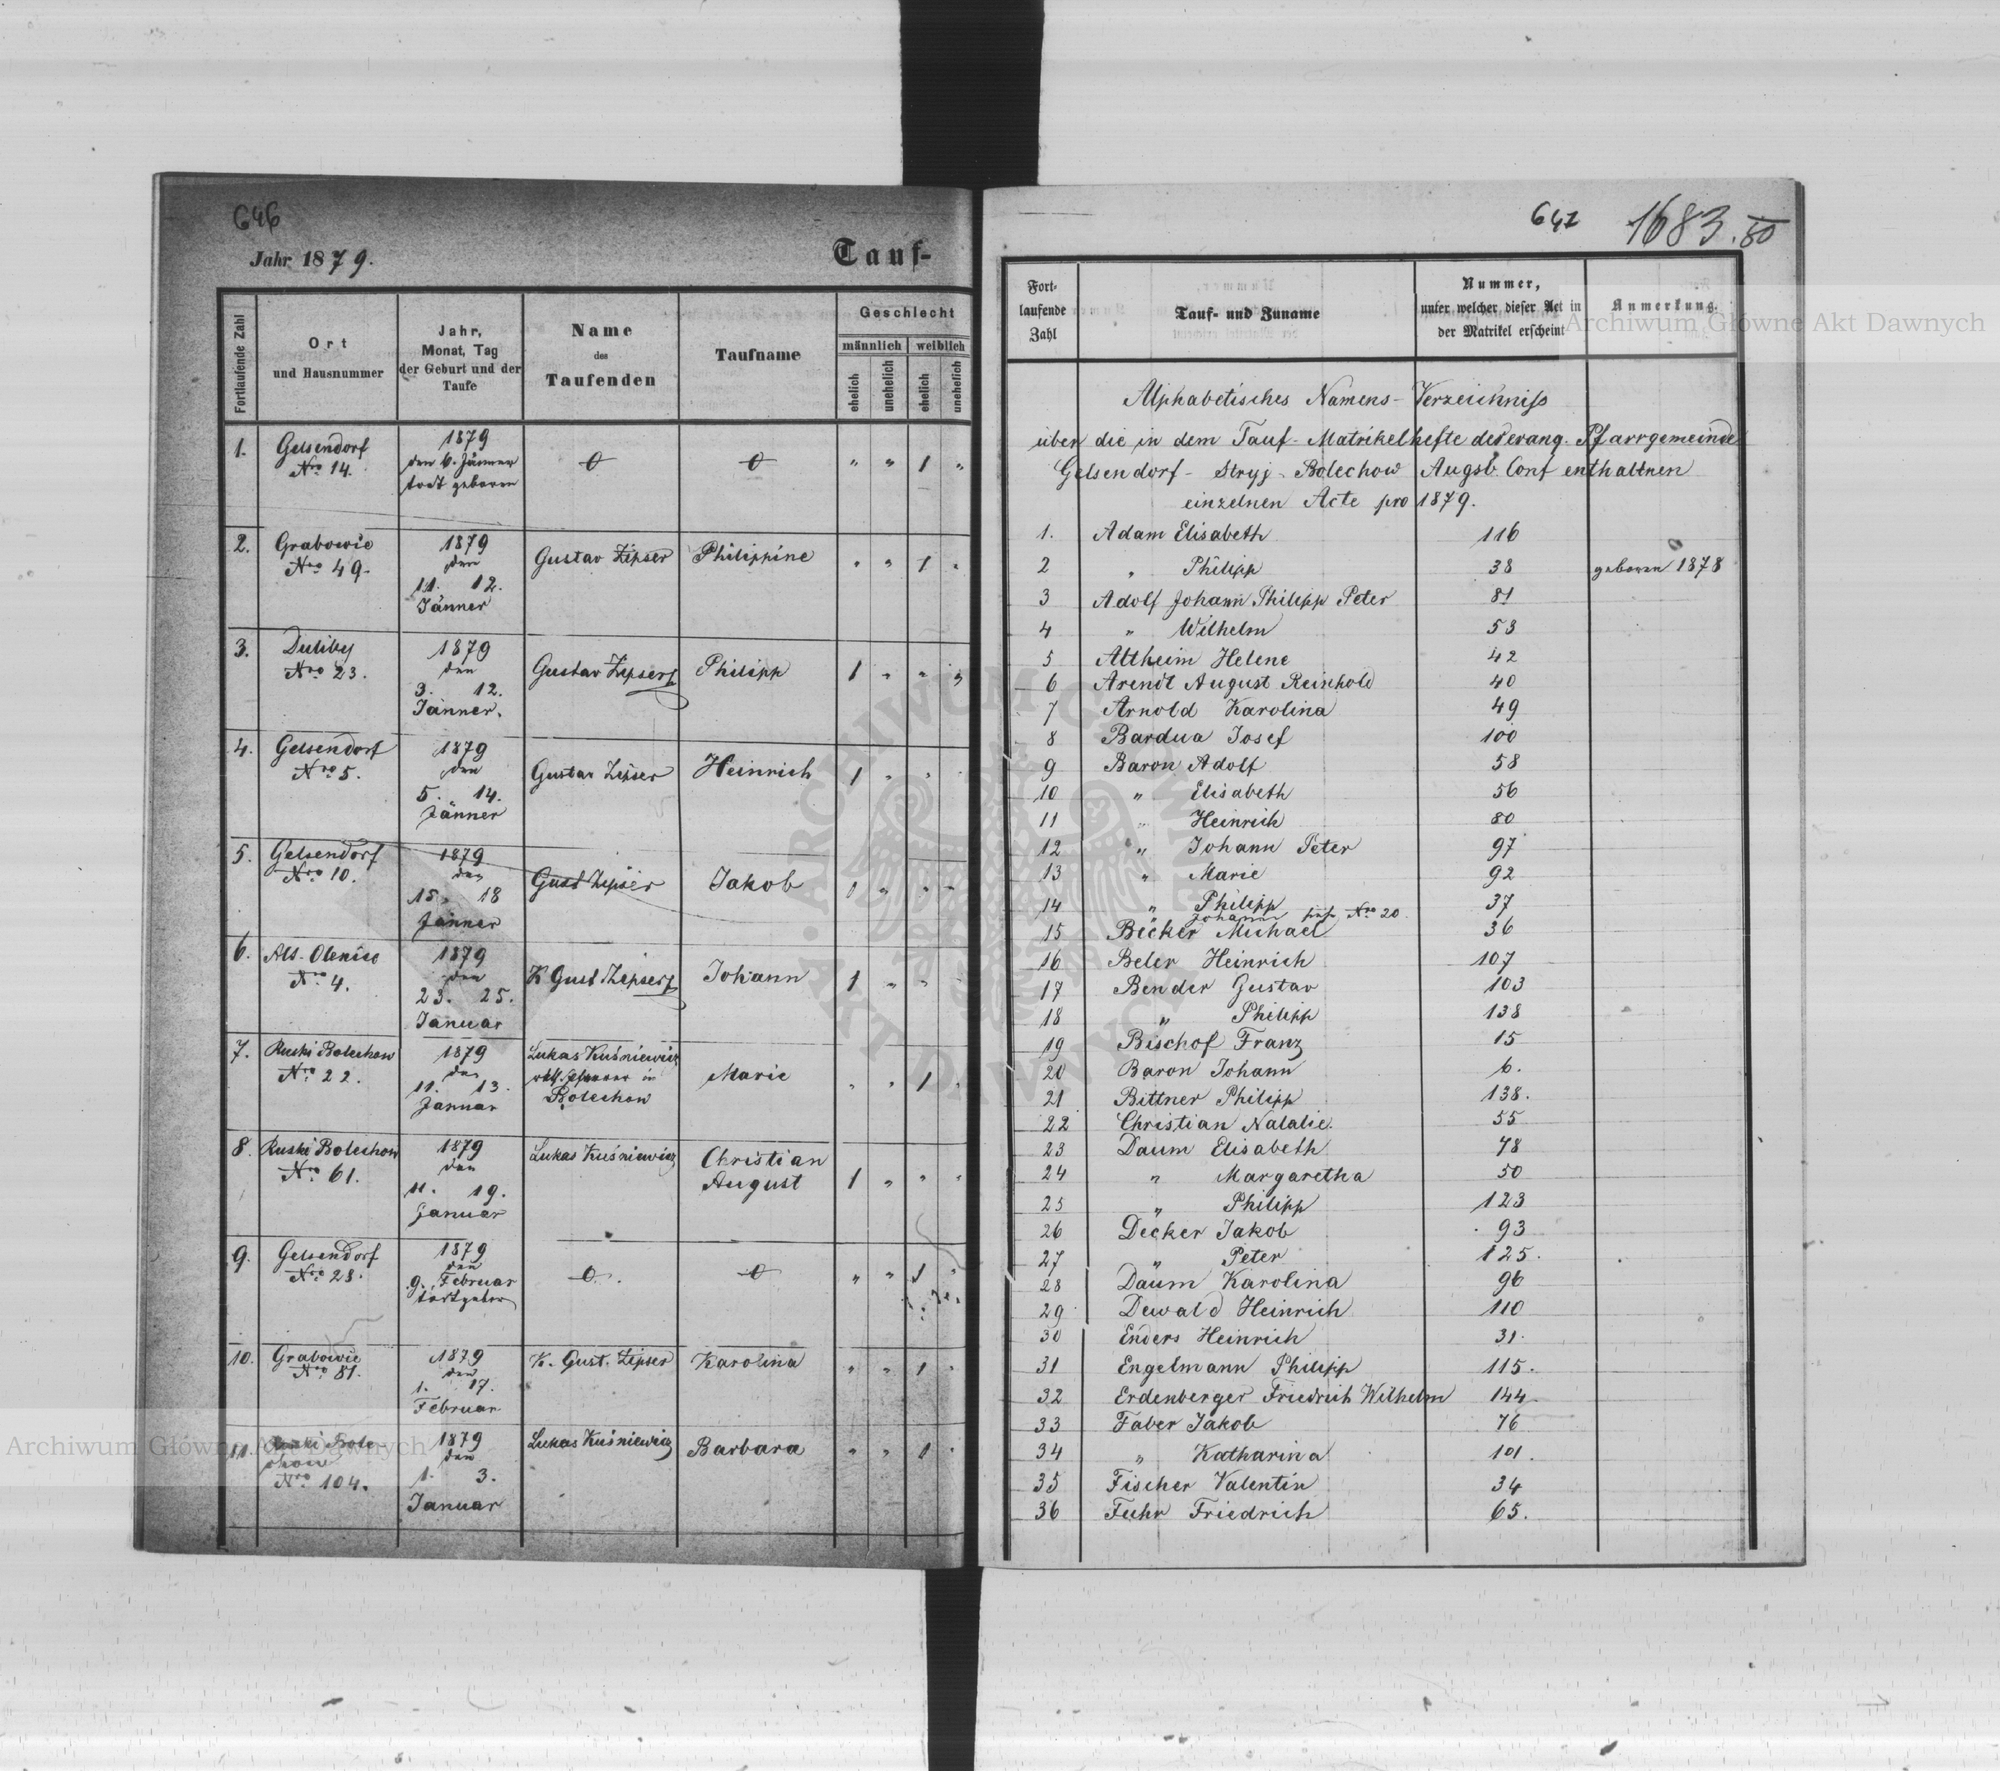 646
Jahr 1879.
Tauf-
Fortlaufende Zahl
Ort
und Hausnummer
Jahr,
Monat, Tag
der Geburt und der
Taufe
Name
des
Taufenden
Taufname
Geschlecht
männlich
weiblich
ehelich
unehelich
ehelich
unehelich
1. Gelsendorf
Nro 14.
1879
den 6. Jänner
todt geboren
0
0
" " 1 "
2. Grabowie
Nro 49.
1879
den
11. 12.
Jänner
Gustav Zipser
Philippine
" " 1 "
3. Duliby
Nro 23.
1879
den
3. 12.
Jänner.
Gustav Zipser
Philipp
1 " " "
4. Gelsendorf
Nro 5.
1879
den
5. 14.
Jänner
Gustav Zipser
Heinrich
1 " " "
5. Gelsendorf
Nro 10.
1879
den
15. 18
Jänner
Gust Zipser
Jakob
1 " " "
6. Als. Olenise
Nro 4.
1879
den
23. 25.
Januar
K Gust Zipser
Johann
1 " " "
7. Ruski Bolechow
Nro 22.
1879
den
11. 13.
Januar
Lukas Kuśniewicz
in
Bolechow
Marie
" " 1 "
8. Ruski Bolechow
Nro 61.
1879
den
11. 19.
Januar
Lukas Kuśniewicz
Christian
August
1 " " "
9. Gelsendorf
Nro 28.
1879
den
9. Februar
0
0
" " 1 "
10. Grabowie
Nro 81.
1879
den
1. 17.
Februar
K. Gust. Zipser
Karolina
" " 1 "
11. Ruski Bole-
chow
Nro 104.
1879
den
1. 3.
Januar
Lukas Kuśniewicz
Barbara
" " 1 "
647
1683.
80
Fort-
laufende
Zahl
Tauf- und Zuname
Nummer,
unter welcher dieser Act in
der Matrikel erscheint
Anmerkung.
Alphabetisches Namens-Verzeichniss
über die in dem Tauf-Matrikelhefte der evang. Pfarrgemeinde
Gelsendorf-Stryj-Bolechow Augsb. Conf enthaltnen
einzelnen Acte pro 1879.
1. Adam Elisabeth 116
2 " Philipp 38 geboren 1878
3 Adolf Johann Philipp Peter 81
4 " Wilhelm 53
5 Altheim Helene 42
6 Arendt August Reinhold 40
7 Arnold Karolina 49
8 Bardua Josef 100
9 Baron Adolf 58
10 " Elisabeth 56
11 " Heinrich 80
12 " Johann Peter 97
13 " Marie 92
14 " Philipp 37
" Johann Nro 20
15 Becker Michael 36
16 Beler Heinrich 107
17 Bender Gustav 103
18 " Philipp 138
19 Bischof Franz 15
20 Baron Johann 6.
21 Bittner Philipp 138.
22 Christian Natalie. 55
23 Daum Elisabeth 78
24 " Margaretha 50
25 " Philipp 123
26 Decker Jakob 93
27 " Peter 125.
28 Daum Karolina 96
29 Dewald Heinrich 110
30 Enders Heinrich 31.
31 Engelmann Philipp 115.
32 Erdenberger Friedrich Wilhelm 144.
33 Faber Jakob 76
34 " Katharina 101.
35 Fischer Valentin 34
36 Fuhr Friedrich 65.
Archiwum Główne Akt Dawnych
Archiwum Główne Akt Dawnych
ARCHIWUM GŁÓWNE AKT DAWNYCH